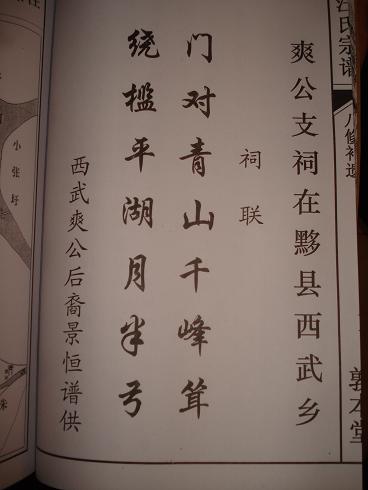 汪氏宗谱
八修补遗
敦本堂
爽公支祠在黟县西武乡
祠联
门对青山千峰耸
绕槛平湖月半弓
西武爽公后裔景恒谱供
小张圩
朱